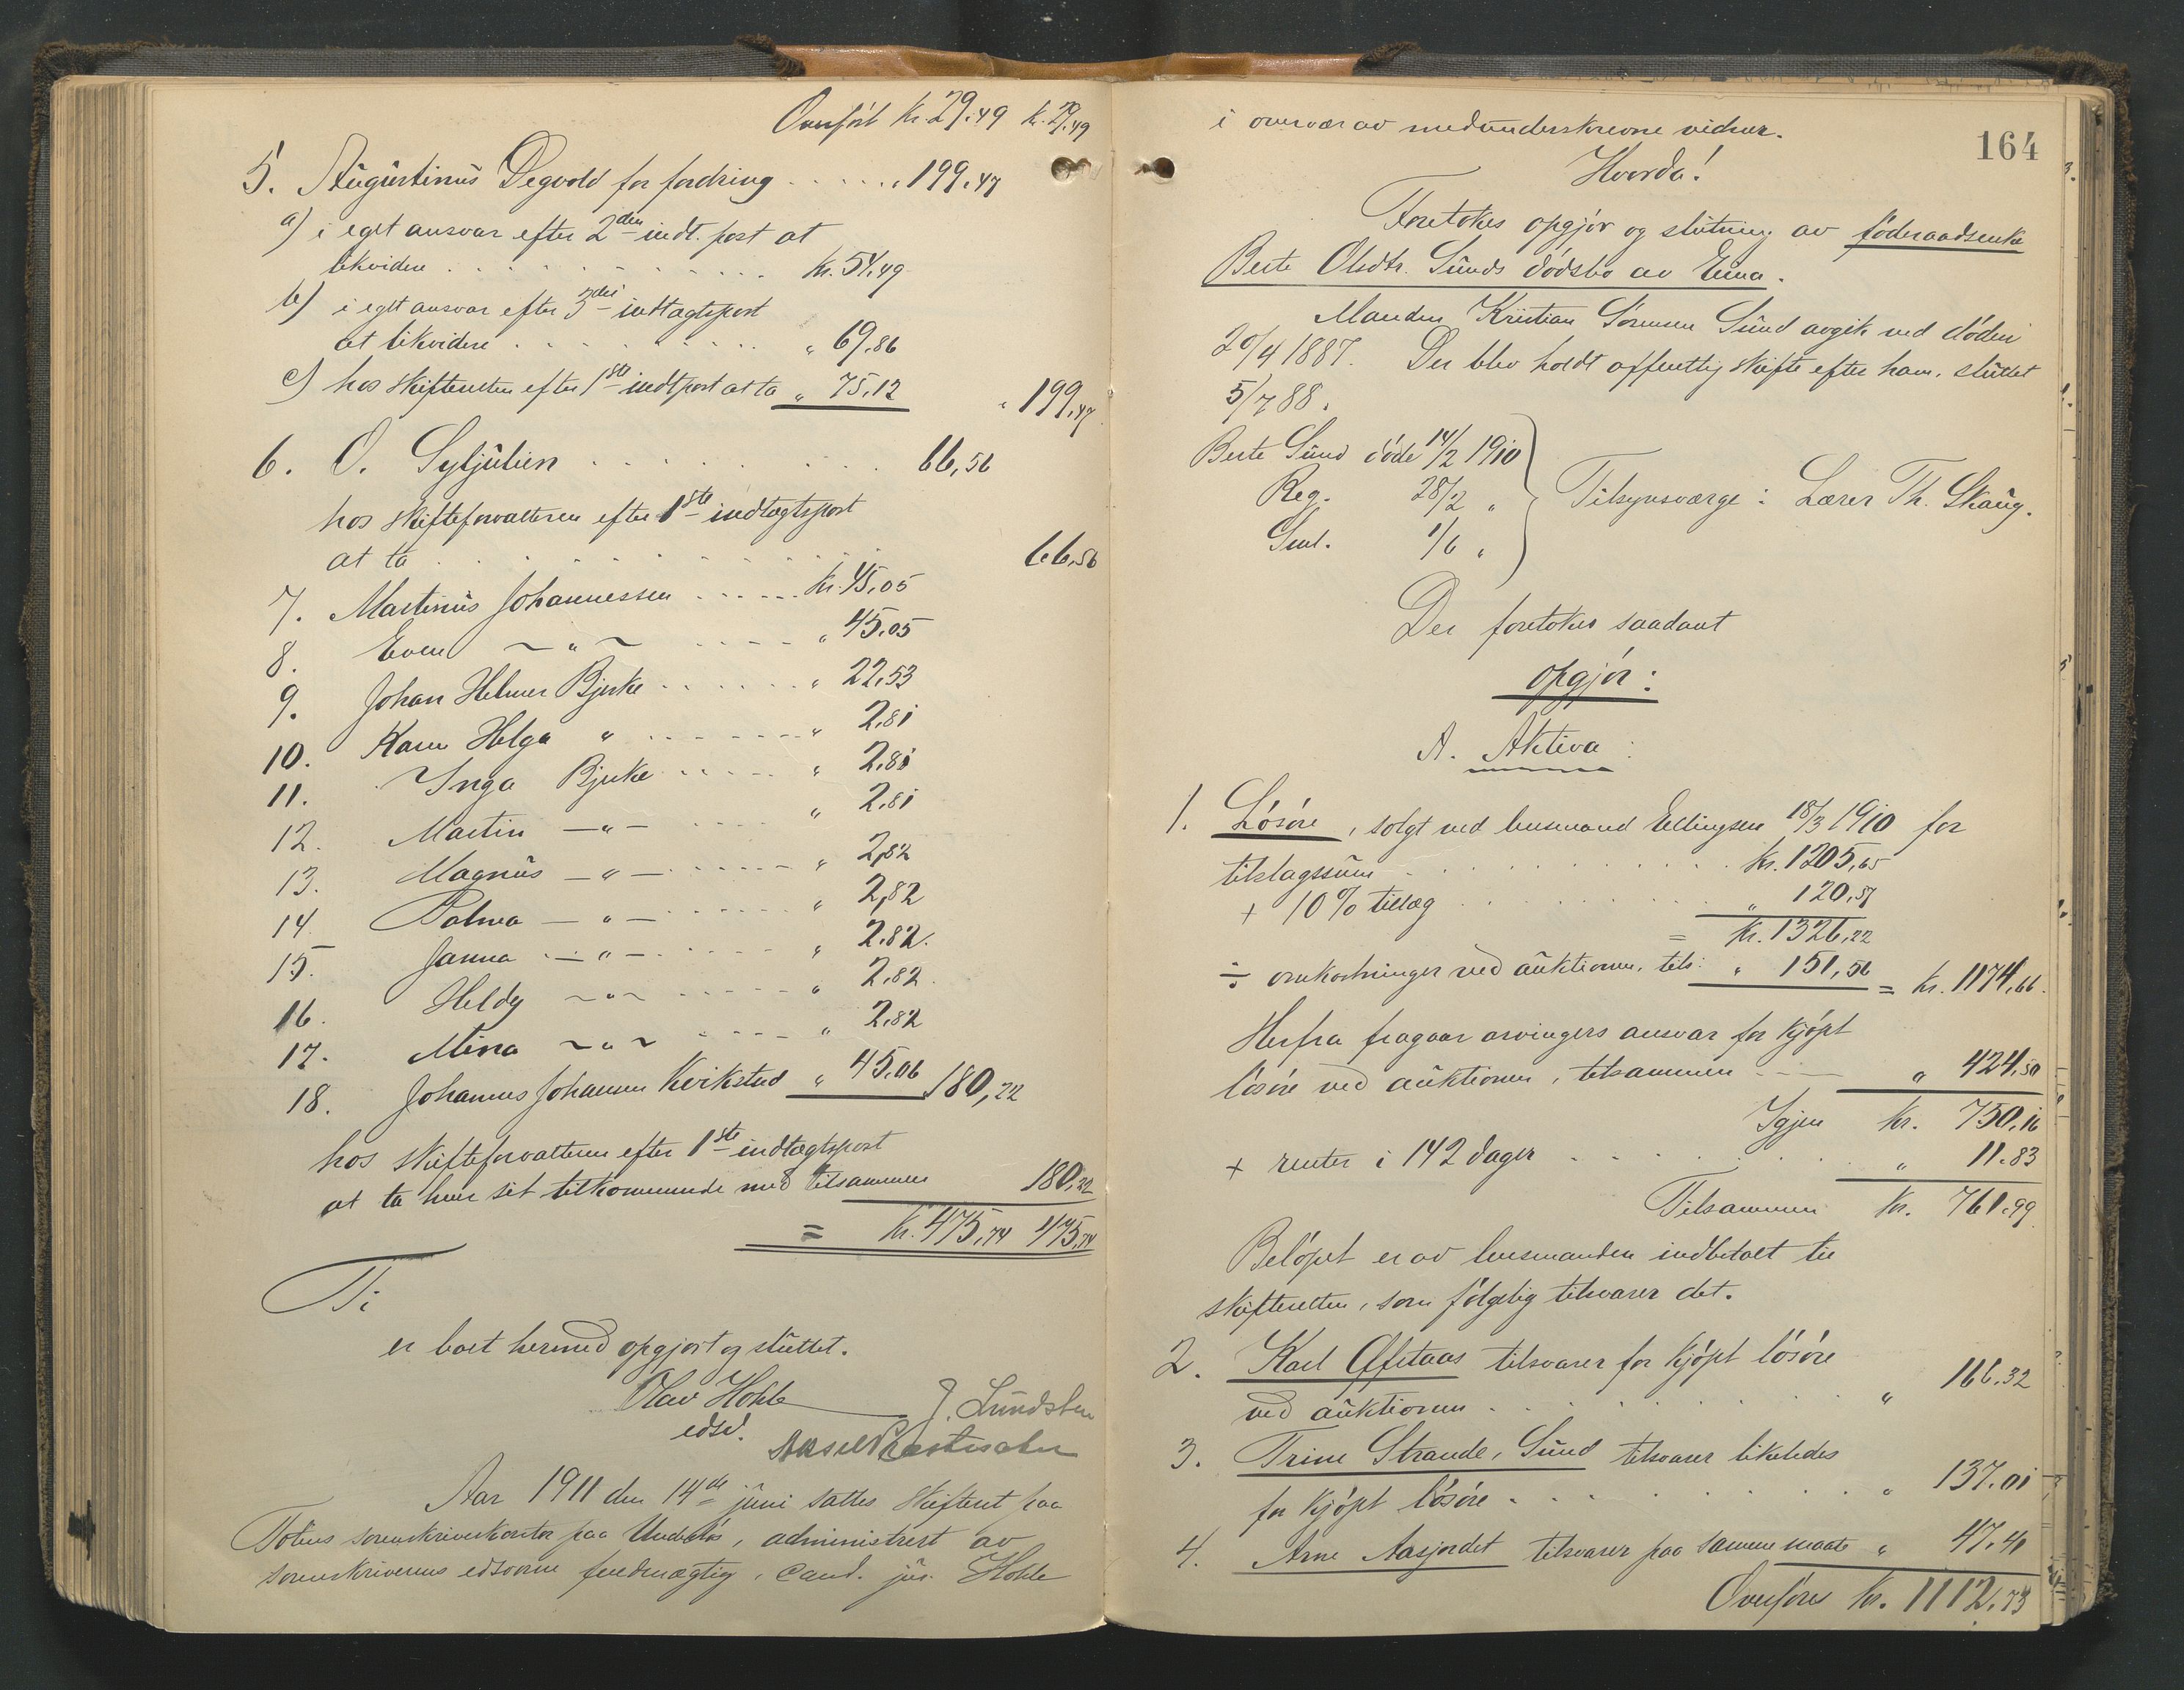 Overført Kr. 29.49 Kr. 29.49
5. Augustinus Degvold for fordring . . . . . . " 199.47
a) i eget ansvar efter 2den indt. post at
likvidere . . . . . . . . . Kr. 54.49
b) i eget ansvar efter 3die indtægtspost
at likvidere . . . . . . . . " 69.86
c) hos skifteretten efter 1ste indtpost at ta " 75.12 " 199.47
6. O. Syljulien . . . . . . . . . . 66,56
hos skifteforvalteren efter 1ste indtægtspost
at ta . . . . . . . . . . . 66,56
7. Martinus Johannessen . . . . . . Kr. 45.05
8. Even ~ " ~ . . . . " 45.05
9. Johan Helmer Bjerke . . . . . . " 22.53
10. Karen Helga " . . . . . . . " 2.81
11. Inga Bjerke . . . . . " 2.81
12. Martin — " — . . . . " 2.81
13. Magnus — " — . . . . . " 2,82
14. Palma — " — . . . . . " 2,82
15. Janna — " — . . . . " 2.82.
16. Heldy ~ " ~ . . . . . " 2.82.
17. Mina ~ " ~ . . . . " 2.82
18. Johannes Johansen Kvikstad " 45.06 180,22
hos skifteforvalteren efter 1ste indtægtspost
at ta hver sit tilkommende med tilsammen 180.22
= Kr. 475,74 475,74
Ti
er boet hermed opgjort og sluttet.
Olav Hohle J. Lundsten
edsv.
Aar 1911 den 14de juni sattes skifteret paa
Totens sorenskriverkontor paa , administrert av
sorenskriverens edsvorne fuldmægtig, cand. jur. Hohle
164
i overvær av medunderskrevne vidner.
Hvorda!
Foretokes opgjør og slutning av føderaadsenke
Berte Olsdtr. Sunds dødsbo av Eina.
Manden Kristian Sørensen Sund avgik ved døden
20/4 1887. Der blev holdt offentlig skifte efter ham, sluttet
5/7 88.
Berte Sund døde 14/2 1910
Reg. 28/2 " Tilsynsværge: Lærer Th. Skaug.
Sml. 1/6 "
Der foretokes saadant
opgjør:
A. Aktiva:
1. Løsøre, solgt ved lensmand Ellingsen 18/3 1910 for
tilslagssum . . . . . . . . . . Kr. 1205,65
+ 10 % tillæg . . . . . . . . " 120,57
= Kr. 1326,22
÷ omkostninger ved auktionen, tils: " 151,56 = Kr. 1174,66.
Herfra fragaar arvingers ansvar for kjøpt
løsøre ved auktionen, tilsammen . . . . " 424,50
Igjen Kr. 750,16
+ renter i 142 dager . . . . . . . " 11.83
Tilsammen Kr. 761.99
Beløpet er av lensmanden indbetalt til
skifteretten, som følgelig tilsvarer det.
2. Karl Offstaas tilsvarer for kjøpt løsøre
ved auktionen . . . . . . . . . " 166.32
3. Trine Strande, Sund tilsvarer likeledes
for kjøpt løsøre . . . . . . . . . " 137.01
4. Arne Aasjordet tilsvarer paa samme maate " 47.41
Overføres Kr. 1112.73